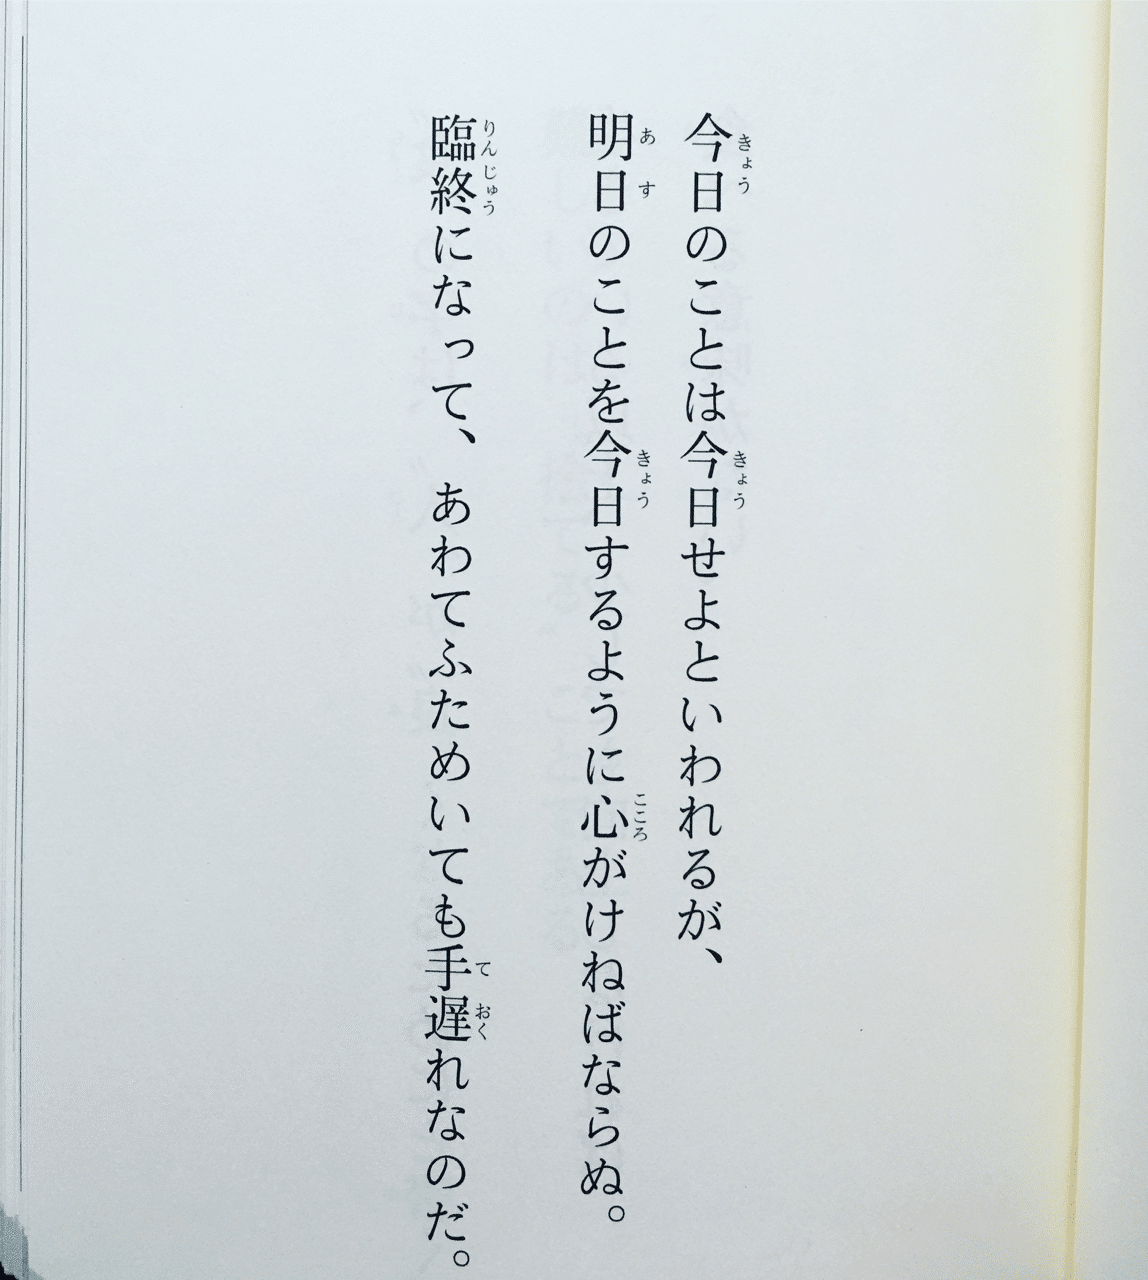 今日のことは今日せよといわれるが、
明日のことを今日するように心がけねばならぬ。
臨終になって、あわてふためいても手遅れなのだ。